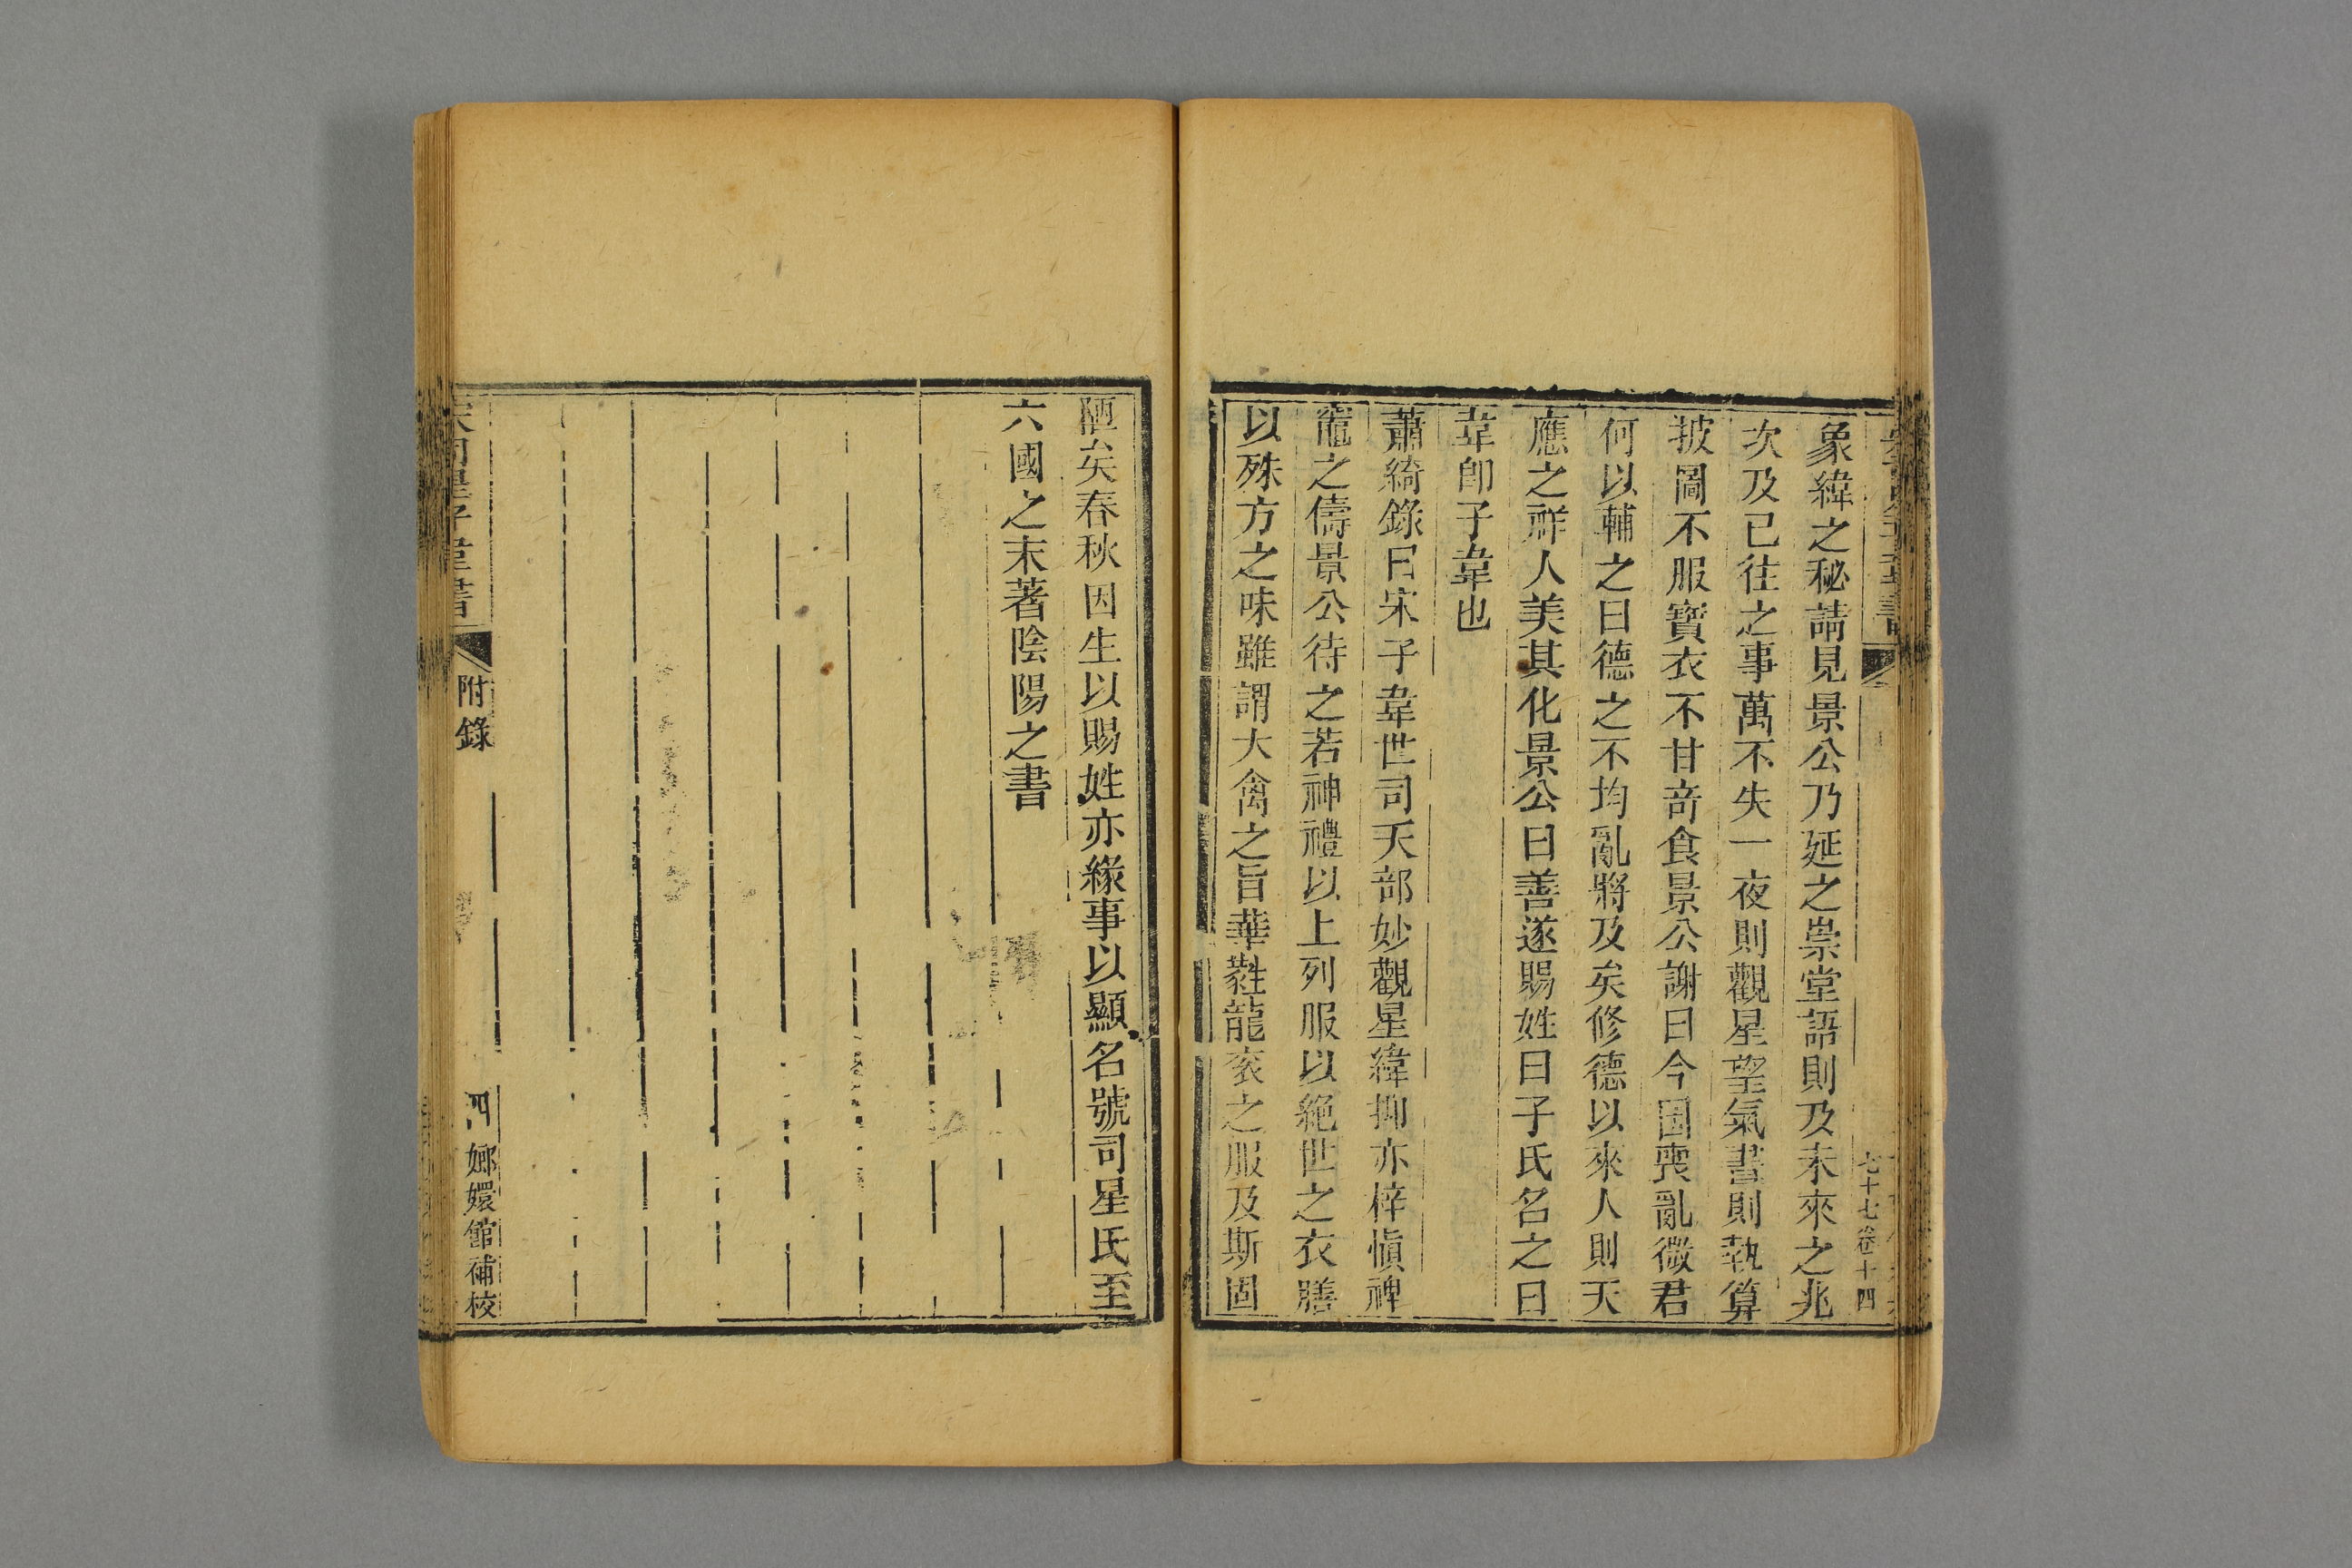 象緯之秘請見景公乃延之崇堂語則及未來之兆
次及已往之事萬不失一夜則觀星望氣晝則執算
披圖不服寶衣不甘奇食景公謝曰今國喪亂微君
何以輔之曰德之不均亂將及矣修德以來人則天
應之祥人美其化景公曰善遂賜姓曰子氏名之曰
韋卽子韋也
蕭綺錄曰宋子韋世司天部妙觀星緯抑亦梓愼裨
竈之儔景公待之若神禮以上列服以絶世之衣膳
以殊方之味雖謂大禽之旨華蕤龍衮之服及斯固
七十七卷十四
陋矣春秋因生以賜姓亦緣事以顯名號司星氏至
六國之末著陰陽之書
附錄
四
嫏嬛館補校